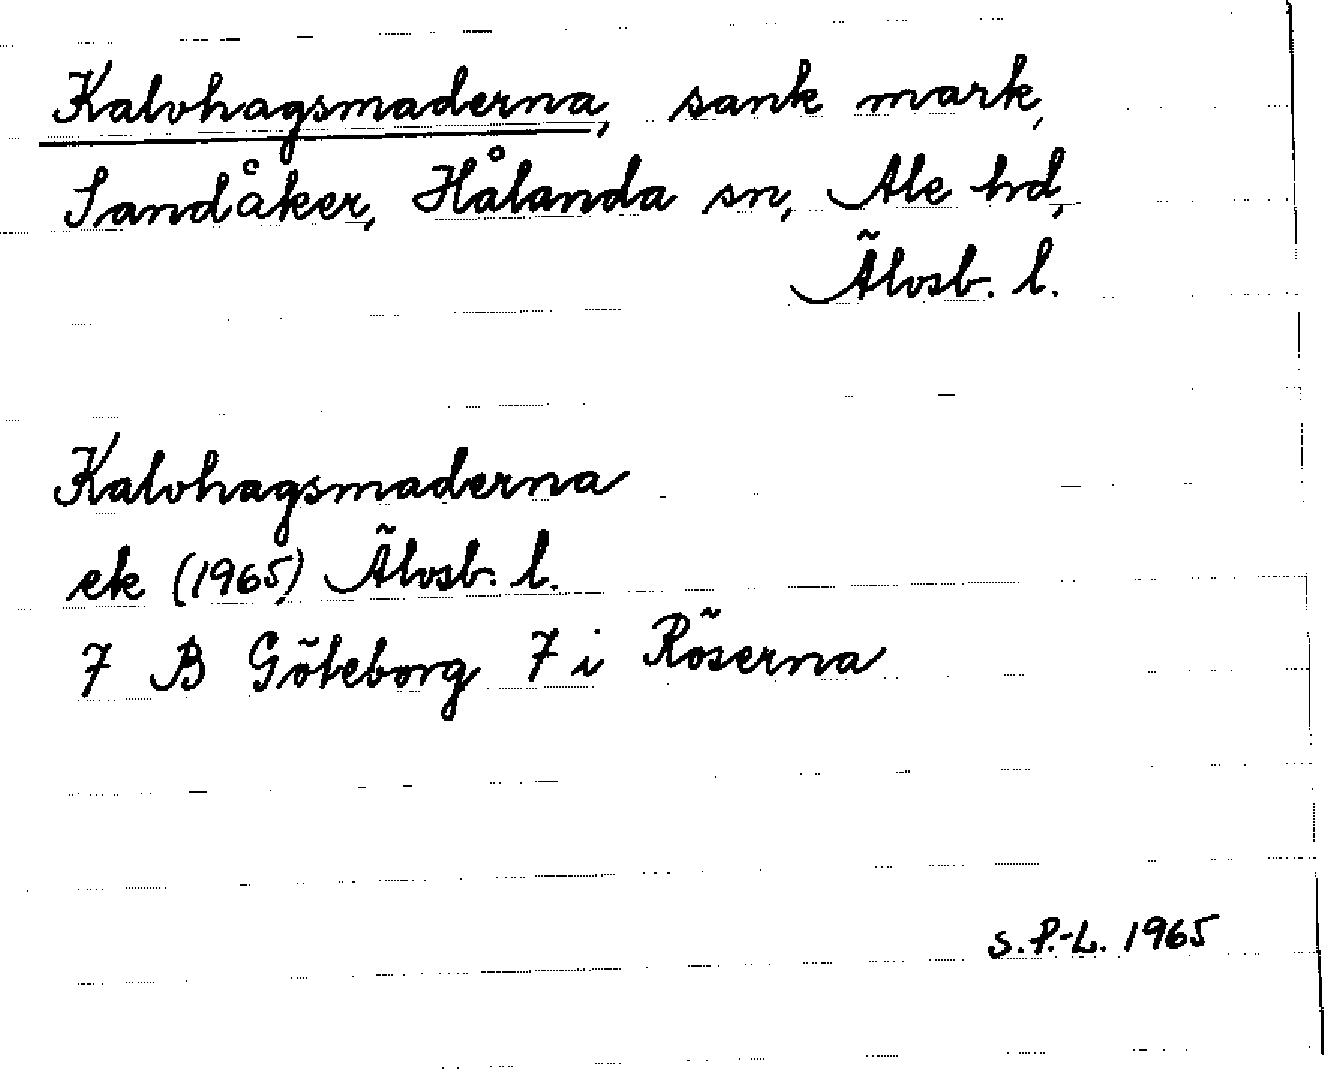 Kalvhagsmaderna, sank mark,
Sandåker, Hålanda sn, Ale hd,
Älvsb. l.
Kalvhagsmaderna
ek (1965) Älvsb. l.
7 B Göteborg 7 i Röserna
S.P.-L. 1965